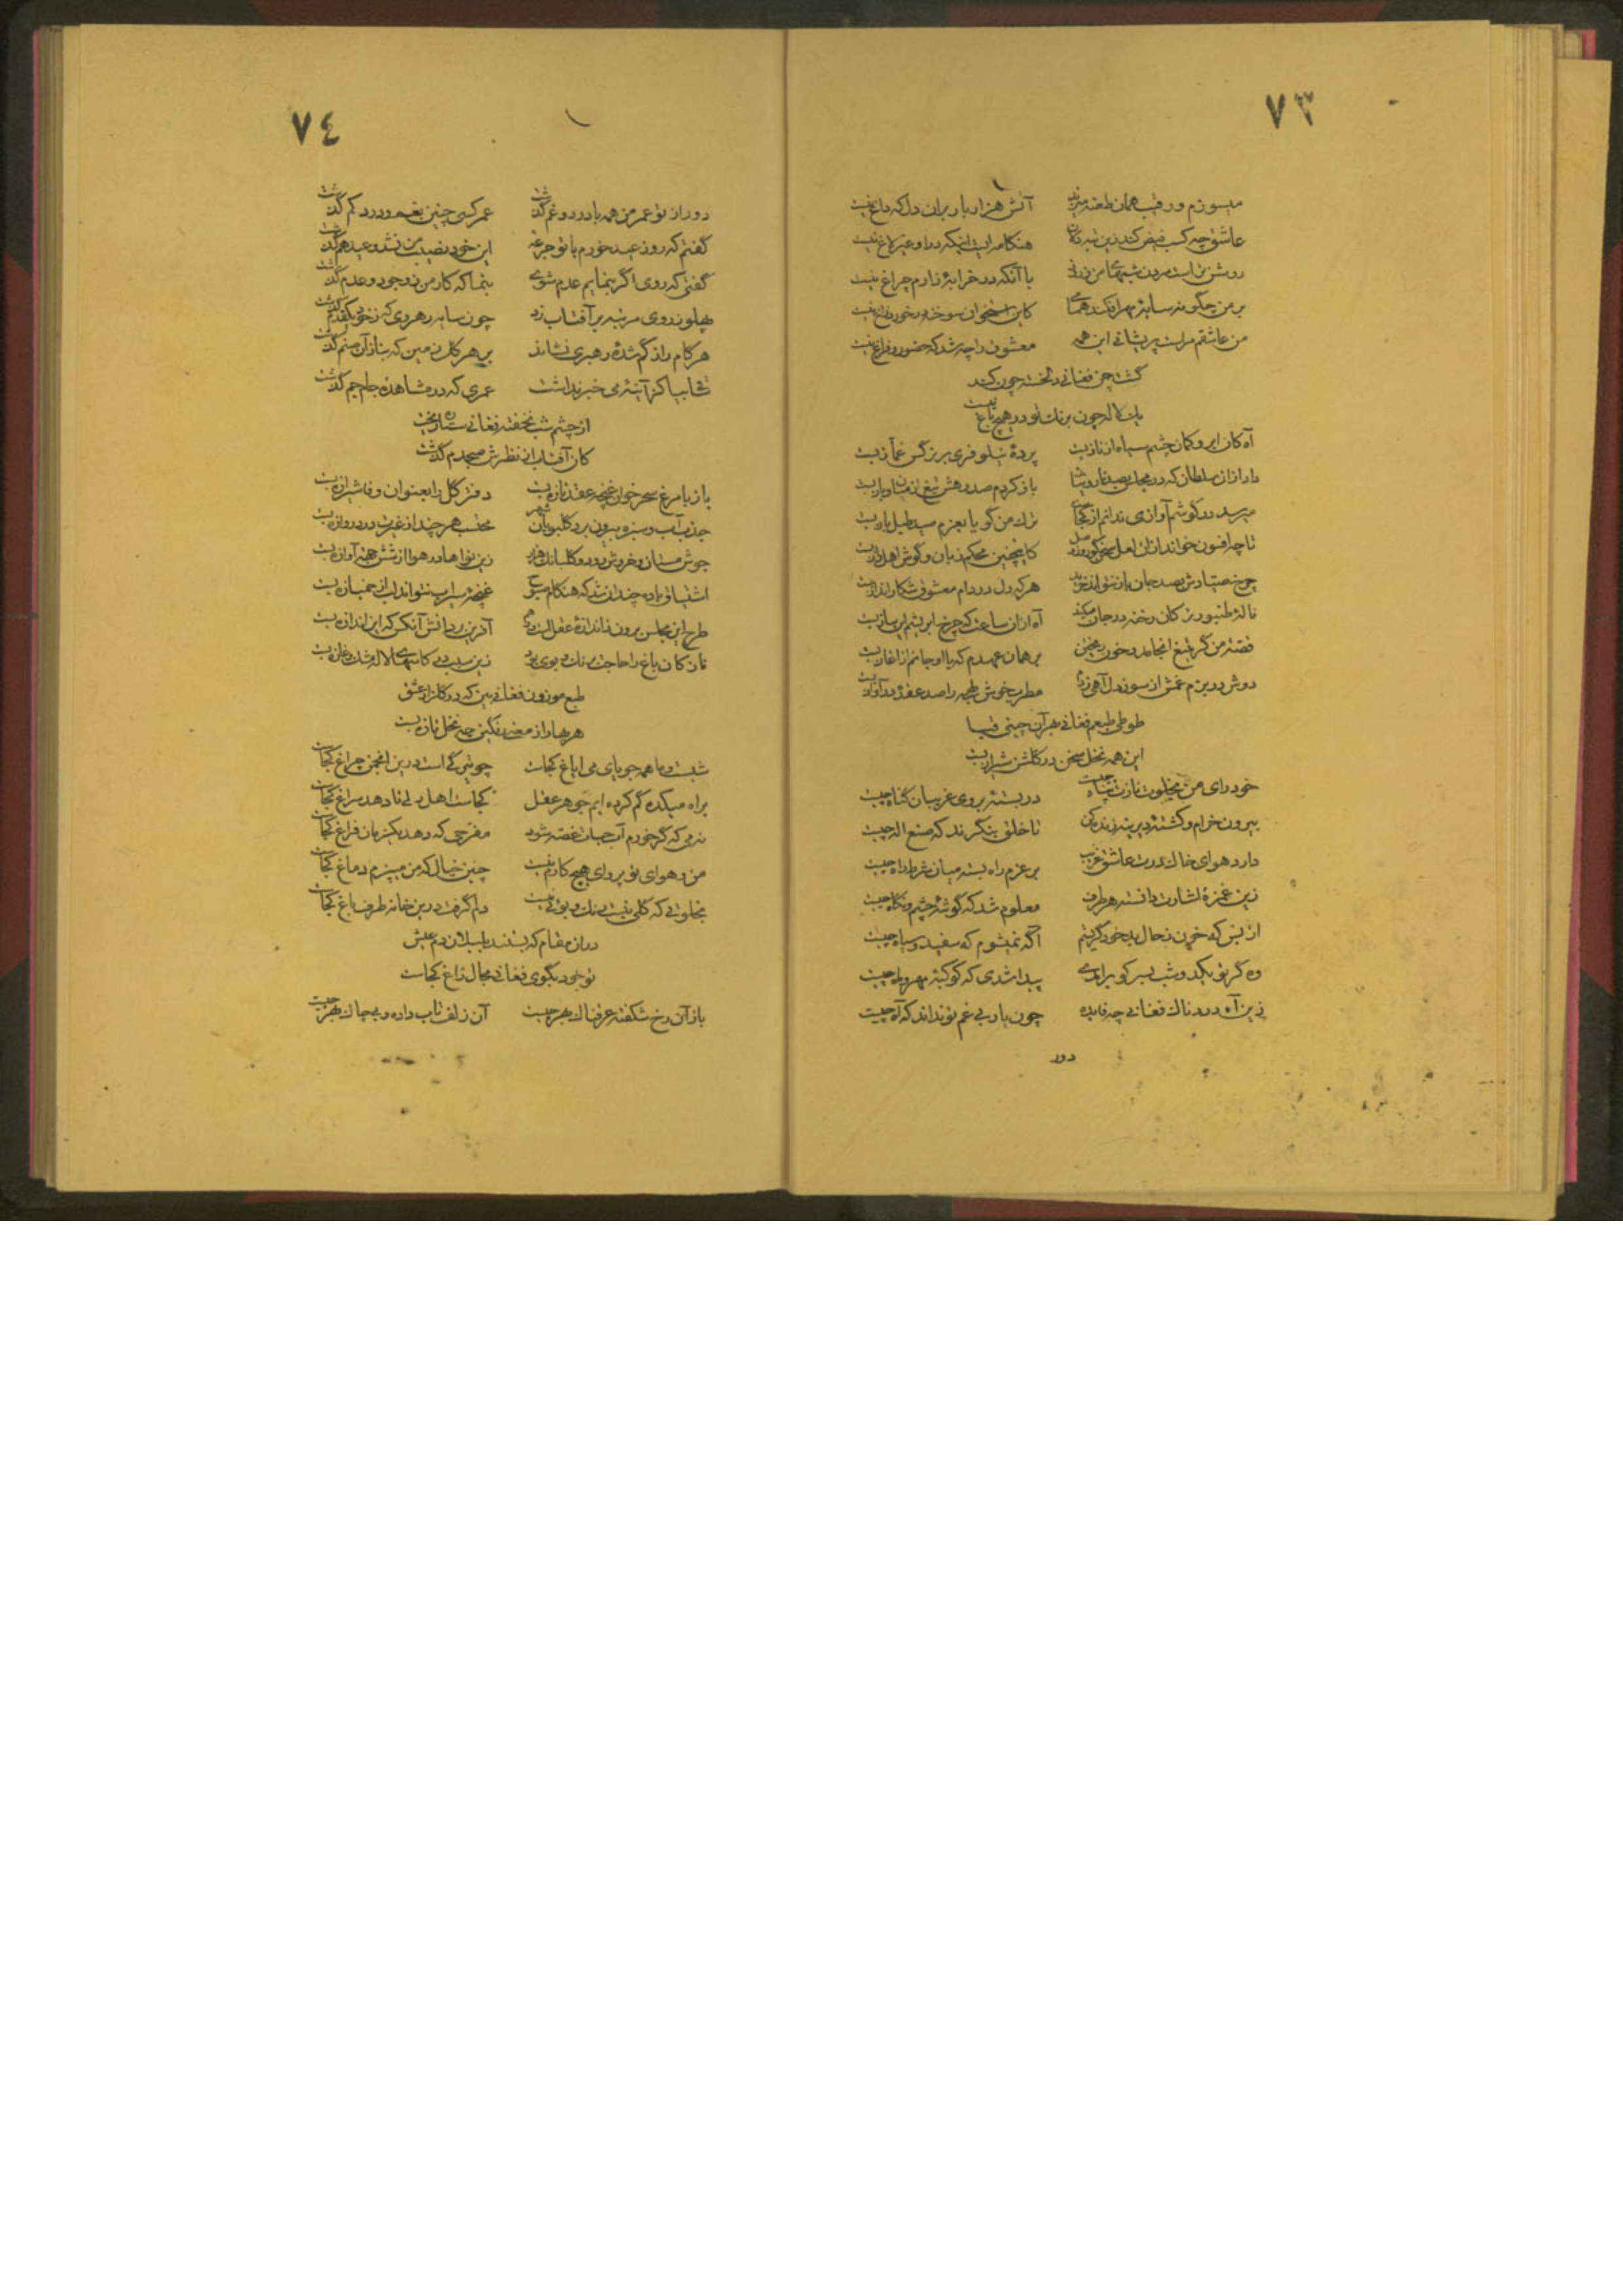 ٧٣
میسوزم و رقیب همان طعنه میزند آتش هزار بار بران دل که داغ نیست
عاشق چه کسب فیض کند زین هنگامه ایست اینکه درو غیر لاغ نیست
روشن بر است مردن شبهای من با آنکه در خرابهٔ زارم چراغ نیست
بر من چگونه سایهٔ مهر افکند همای کاین استخوان سوخته در خورد زاغ نیست
من عاشقم مراست پریشانی این همه معشوق را چه شد که حضور و فراغ نیست
گشت چمن فغانی دلخسته چون کند
یک لاله چون برنگ تو در هیچ باغ نیست
آه کان ابرو کمان چشم سیاه از ناز بست پردهٔ نیلوفری بر نرگس غماز بست
داد ازان سلطان که در مجلس بصد باز کردم صد رهش تیغ از میان و باز بست
میرسد در گوشم آوازی ندانم از کجا ترک من گویا بعزم صید طبل باز بست
تا چه افسون خواند ازان لعل سخنگو کاینچنین محکم زبان و گوش اهل راز بست
چرخ صیادش بصد جان باز نتواند خرید هر که دل در دام معشوق شکار انداز بست
نالهٔ طنبور ترکان رخنه در جان میکند آه ازان ساعت که چرخ ابریشم این ساز بست
قصهٔ من گر بتیغ انجامد و خون ریختن بر همان عهدم که با او جانم از آغاز بست
دوش در بزم غمش از سوز دل آهی زدم مطرب خوش لهجه را صد عقده در آواز بست
طوطی طبعم فغانی بهر آن چینی قبا
این همه نخل سخن در گلشن شیراز بست
خود رای من بخلوت نازت پناه چیست در بسته بروی غریبان گناه چیست
بیرون خرام و کشتهٔ دیرینه زنده کن تا خلق بنگرند که صنع اله چیست
دارد هوای خاک درت عاشق غریب بر عزم راه بسته میان شرط راه چیست
زین غمزه اشارت دانسته هر طرف معلوم شد که گوشهٔ چشم و نگاه چیست
از بس که خون ز حال بد خود گریستم آگه نمیشوم که سفید و سیاه چیست
وه گر تو یکدو شب بسر کو برآمدی پیدا شدی که کوکبهٔ مهر و ماه چیست
زین آه دردناک فغانی چه فایده چون یار بی غم تو نداند که آه چیست
دور
٧٤
دور از تو عمر من همه با درد و غم گذشت عمر کسی چنین بغم و درد کم گذشت
گفتم که روز عید خورم با تو جرعهٔ این خود نصیب من نشد و عید هم گذشت
گفتی که روی اگر بنمایم عدم شوی بنما که کار من ز وجود و عدم گذشت
پهلو ز روی مرتبه بر آفتاب زد چون سایه رهروی که ز خود یکقدم گذشت
هر گام راز گم شدهٔ رهبری نشاند بر هر گل زمین که بناز آن صنم گذشت
ساقی بیا کز آینهٔ می خبر نداشت عمری که در مشاهدهٔ جام جم گذشت
از چشم شب نخفته فغانی ستاره ریخت
کان آفتاب از نظرش صبحدم گذشت
باز با مرغ سحر خوان غنچه عقد تازه بست دفتر گل را بعنوان وفا شیرازه بست
جذب آب و سبزه بیرون برد گلبویان شهر محتسب هر چند از غیرت در دروازه بست
جوش مستان و خروش رود و گلبانگ هزار زین نواها در هوا از شش جهت آوازه بست
اشتیاق باده چندان شد که هنگام صبوح غنچهٔ سیراب نتواند لب از خمیازه بست
طرح این مجلس برون ز اندازهٔ عقل است آفرین بر دانش آنکس که این اندازه بست
نازکان باغ را حاجت برنگ و بوی بود زین سبب دی کآسمان لاله مشک و غازه بست
طبع موزون فغانی بین که در گلزار عشق
هر بهار از معنی رنگین چه نخل تازه بست
شبست و ما همه جویای می ایاغ کجاست چو تیرگی است درین انجمن چراغ کجاست
براه میکده گم کرده ایم جوهر عقل کجاست اهل دلی تا دهد سراغ کجاست
ندیمی که گر خورم آب حیات غصه شود مفرحی که دهد یکزمان فراغ کجاست
من و هوای تو پروای هیچ کارم نیست چنین خیال که من میپزم دماغ کجاست
بخلوتی که گلی نیست رنگ و بوئی نیست دلم گرفت درین خانه طرف باغ کجاست
دران مقام که بستند بلبلان دم عیش
تو خود بگوی فغانی مجال زاغ کجاست
باز آن رخ شکفته عرقناک بهر چیست آن زلف تاب داده و بی چاک بهر چیست